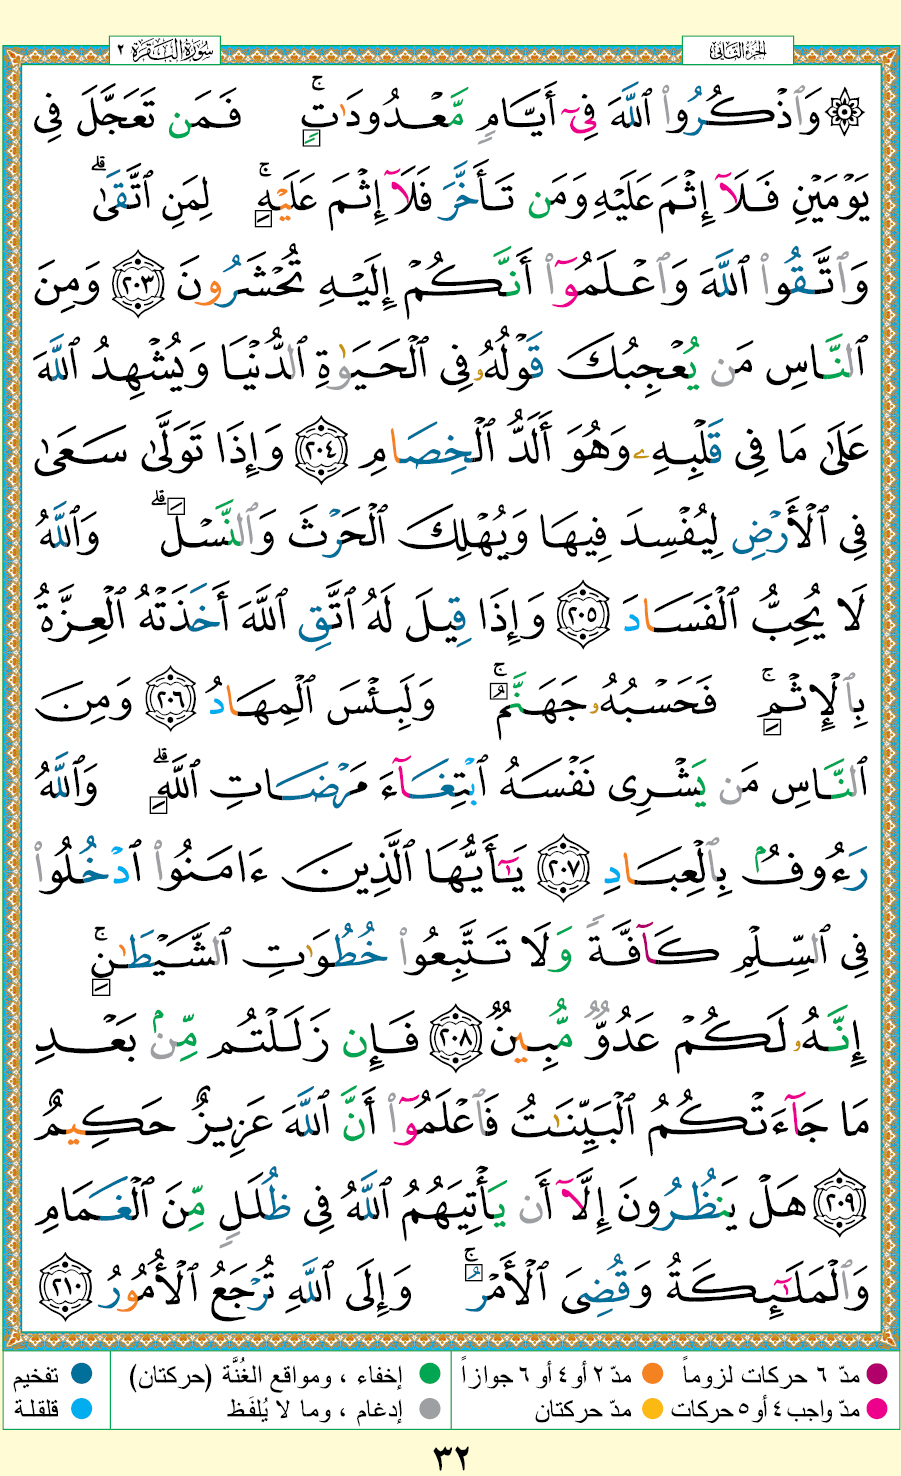 سُورَةُ البَقَرَة ٢
الجزء الثاني
۞ وَٱذۡكُرُواْ ٱللَّهَ فِيٓ أَيَّامٖ مَّعۡدُودَٰتٖۚ فَمَن تَعَجَّلَ فِي
يَوۡمَيۡنِ فَلَآ إِثۡمَ عَلَيۡهِ وَمَن تَأَخَّرَ فَلَآ إِثۡمَ عَلَيۡهِۚ لِمَنِ ٱتَّقَىٰۗ
وَٱتَّقُواْ ٱللَّهَ وَٱعۡلَمُوٓاْ أَنَّكُمۡ إِلَيۡهِ تُحۡشَرُونَ ٢٠٣ وَمِنَ
ٱلنَّاسِ مَن يُعۡجِبُكَ قَوۡلُهُۥ فِي ٱلۡحَيَوٰةِ ٱلدُّنۡيَا وَيُشۡهِدُ ٱللَّهَ
عَلَىٰ مَا فِي قَلۡبِهِۦ وَهُوَ أَلَدُّ ٱلۡخِصَامِ ٢٠٤ وَإِذَا تَوَلَّىٰ سَعَىٰ
فِي ٱلۡأَرۡضِ لِيُفۡسِدَ فِيهَا وَيُهۡلِكَ ٱلۡحَرۡثَ وَٱلنَّسۡلَۚ وَٱللَّهُ
لَا يُحِبُّ ٱلۡفَسَادَ ٢٠٥ وَإِذَا قِيلَ لَهُ ٱتَّقِ ٱللَّهَ أَخَذَتۡهُ ٱلۡعِزَّةُ
بِٱلۡإِثۡمِۚ فَحَسۡبُهُۥ جَهَنَّمُۚ وَلَبِئۡسَ ٱلۡمِهَادُ ٢٠٦ وَمِنَ
ٱلنَّاسِ مَن يَشۡرِي نَفۡسَهُ ٱبۡتِغَآءَ مَرۡضَاتِ ٱللَّهِۗ وَٱللَّهُ
رَءُوفُۢ بِٱلۡعِبَادِ ٢٠٧ يَٰٓأَيُّهَا ٱلَّذِينَ ءَامَنُواْ ٱدۡخُلُواْ
فِي ٱلسِّلۡمِ كَآفَّةٗ وَلَا تَتَّبِعُواْ خُطُوَٰتِ ٱلشَّيۡطَٰنِۚ
إِنَّهُۥ لَكُمۡ عَدُوّٞ مُّبِينٞ ٢٠٨ فَإِن زَلَلۡتُم مِّنۢ بَعۡدِ
مَا جَآءَتۡكُمُ ٱلۡبَيِّنَٰتُ فَٱعۡلَمُوٓاْ أَنَّ ٱللَّهَ عَزِيزٌ حَكِيمٌ
٢٠٩ هَلۡ يَنظُرُونَ إِلَّآ أَن يَأۡتِيَهُمُ ٱللَّهُ فِي ظُلَلٖ مِّنَ ٱلۡغَمَامِ
وَٱلۡمَلَٰٓئِكَةُ وَقُضِيَ ٱلۡأَمۡرُۚ وَإِلَى ٱللَّهِ تُرۡجَعُ ٱلۡأُمُورُ ٢١٠
مدّ ٦ حركات لزوماً مدّ ٢ أو ٤ أو ٦ جوازاً إخفاء ، ومواقع الغُنَّة (حركتان) تفخيم
مدّ واجب ٤ أو ٥ حركات مدّ حركتان إدغام ، وما لا يُلفَظ قلقلة
٣٢